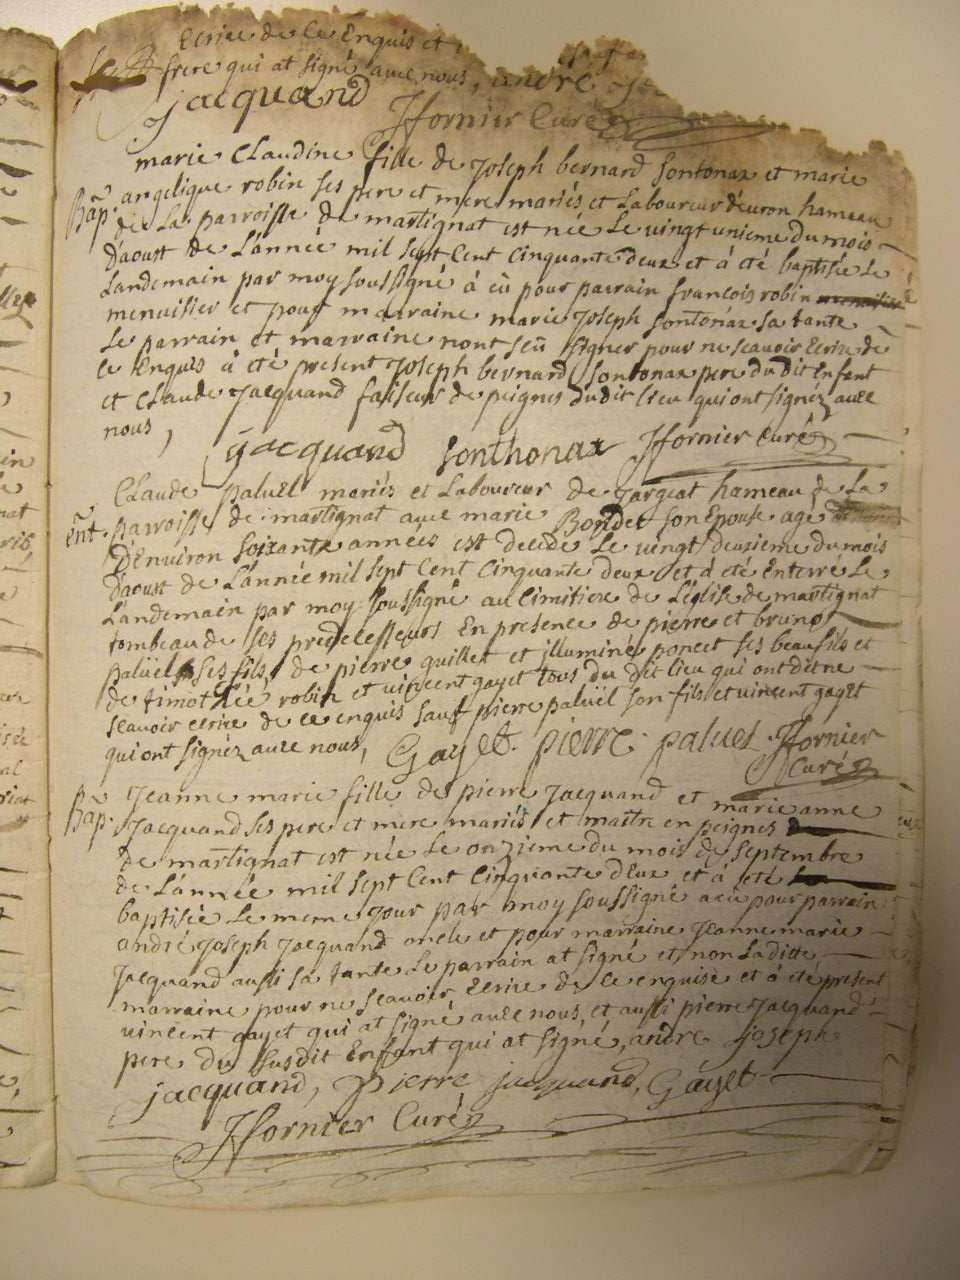 Ecrire de ce Enquis et
frere qui at signé avec nous, andré
jacquand
Hfornier Curé
marie Claudine fille de Joseph bernard sontonax et marie
Bãp. angelique robin ses pere et mere mariés et Laboureur d'euron hameau
de La parroisse de martignat est née Le vingt unieme du mois
d'aoust de L'année mil sept Cent Cinquante deux et á eté baptisée Le
Landemain par moy soussigné á eü pour parrain francois robin menuisier
menuisier et pour marraine marie Joseph sontonax sa tante
Le parrain et marraine n'ont seü signer pour ne scavoir Ecrire de
ce Enquis á eté present Joseph bernard sontonax pere du dit Enfant
et Claude Jacquand faiseur de peignes du dit lieu qui ont signéz avec
nous,
jacquand sonthonax Hfornier Curé
Claude paluel mariés et Laboureur de Jargeat hameau de La
ẽnt. parroisse de martignat avec marie Bondet son Epouse agé
D'environ soixante années est decedé Le vingt deuxieme du mois
d'aoust de L'année mil sept Cent Cinquante deux et á eté Enterré Le
Landemain par moy soussigné au Cimitiere de L'église de martignat
tombeau de ses predecesseurs En presence de pierre et bruno
paluël ses fils, de pierre guillet et illuminé poncet ses beaufils et
de timothée robin et vincent gayet tous du dit lieu qui ont dit ne
scavoir ecrire de ce enquis sauf pierre paluël son fils et vincent gayet
qui ont signéz avec nous,
Gayet. pierre paluel Hfornier
Curé
Jeanne marie fille de pierre Jacquand et marie anne
Bãp. Jacquand ses pere et mere mariés et maitre en peignes
de martignat est née Le onzieme du mois de septembre
de L'année mil sept Cent Cinquante d'Eux et á eté
baptisée Le meme Jour par moy soussigné a eü pour parrain
andré Joseph Jacquand oncle et pour marraine Jeanne marie
Jacquand aussi sa tante Le parrain at signé et non La ditte
marraine pour ne scavoir Ecrire de ce enquise et á eté present
vincent gayet qui at signé avec nous, et aussi pierre Jacquand
pere du susdit Enfant qui at signé, andre joseph
jacquand, pierre jacquand, Gayet
Hfornier Curé